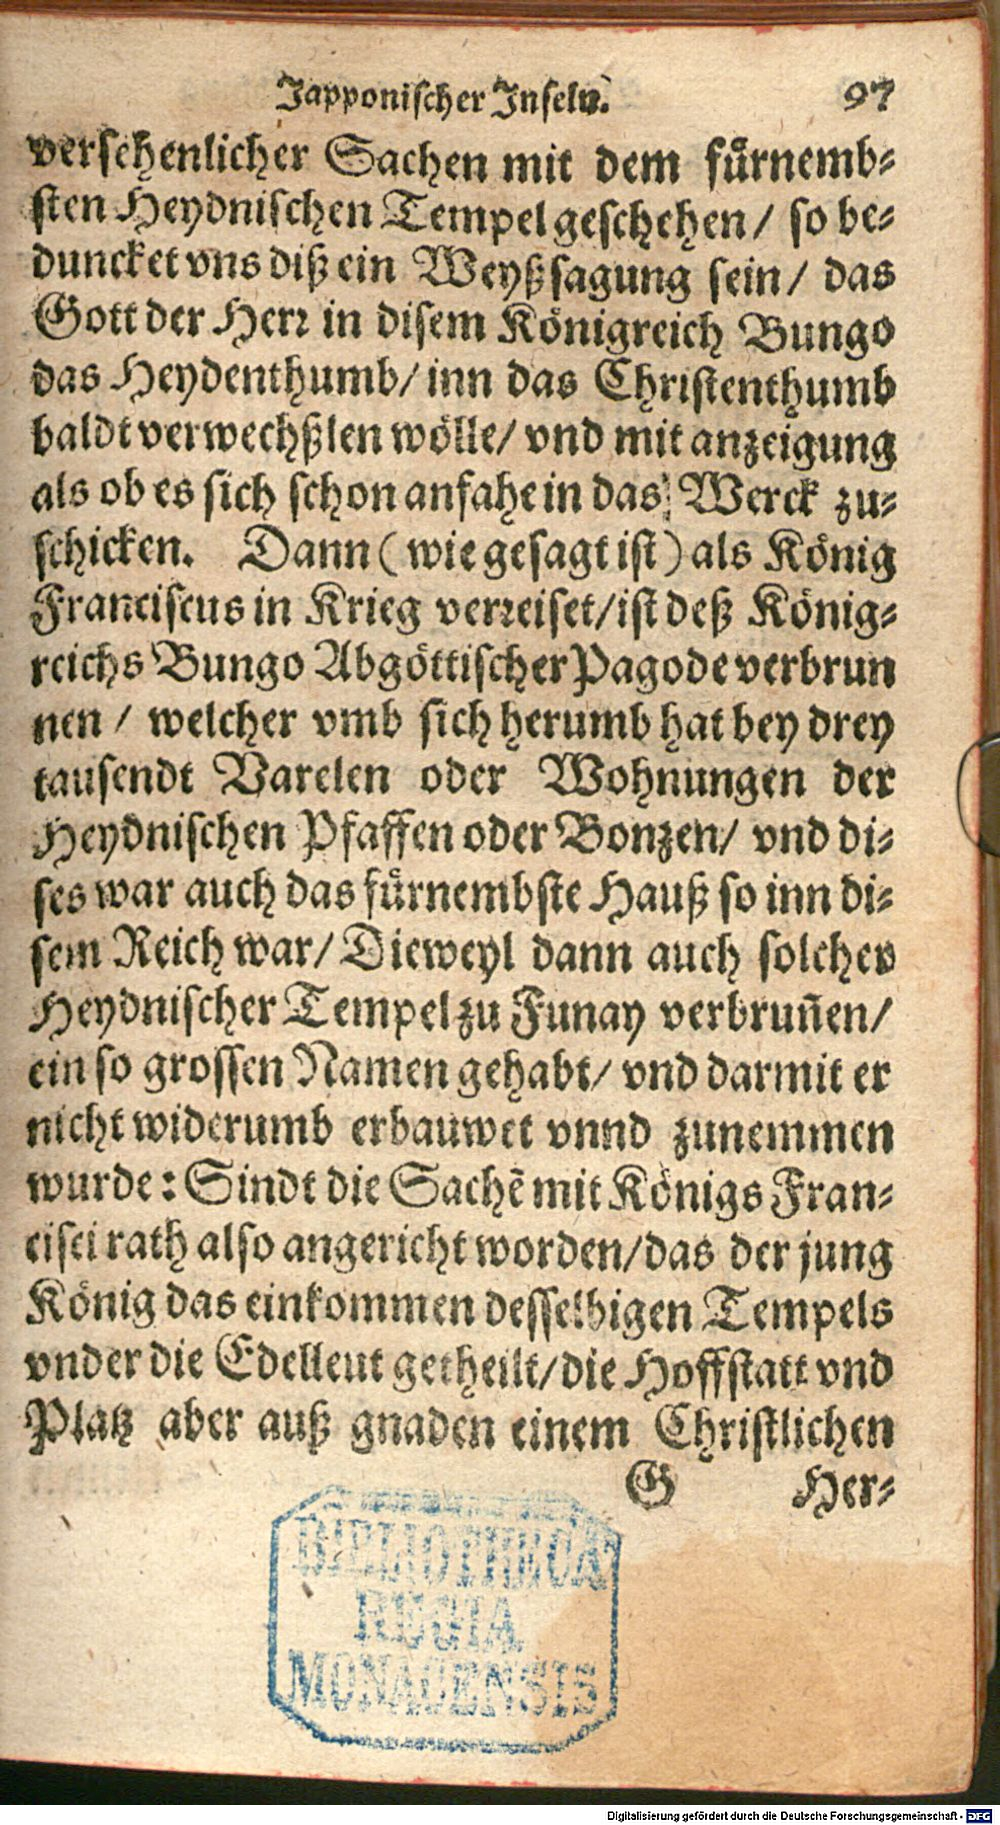 Japponischer Inseln. 97
versehenlicher Sachen mit dem fürnemb-
sten Heydnischen Tempel geschehen / so be-
duncket vns diß ein Weyßsagung sein / das
Gott der Herr in disem Königreich Bungo
das Heydenthumb / inn das Christenthumb
baldt verwechßlen wölle / vnd mit anzeigung
als ob es sich schon anfahe in das Werck zu-
schicken. Dann ( wie gesagt ist ) als König
Franciscus in Krieg verreiset / ist deß König-
reichs Bungo Abgöttischer Pagode verbrun
nen / welcher vmb sich herumb hat bey drey
tausendt Varelen oder Wohnungen der
Heydnischen Pfaffen oder Bonzen / vnd di-
ses war auch das fürnembste Hauß so inn di-
sem Reich war / Dieweyl dann auch solcher
Heydnischer Tempel zu Funay verbrun̄en /
ein so grossen Namen gehabt / vnd darmit er
nicht widerumb erbauwet vnnd zunemmen
wurde : Sindt die Sachẽ mit Königs Fran-
cisci rath also angericht worden / das der jung
König das einkommen desselbigen Tempels
vnder die Edelleut getheilt / die Hoffstatt vnd
Platz aber auß gnaden einem Christlichen
G Her-
BIBLIOTHECA
REGIA
MONACENSIS
Digitalisierung gefördert durch die Deutsche Forschungsgemeinschaft - DFG